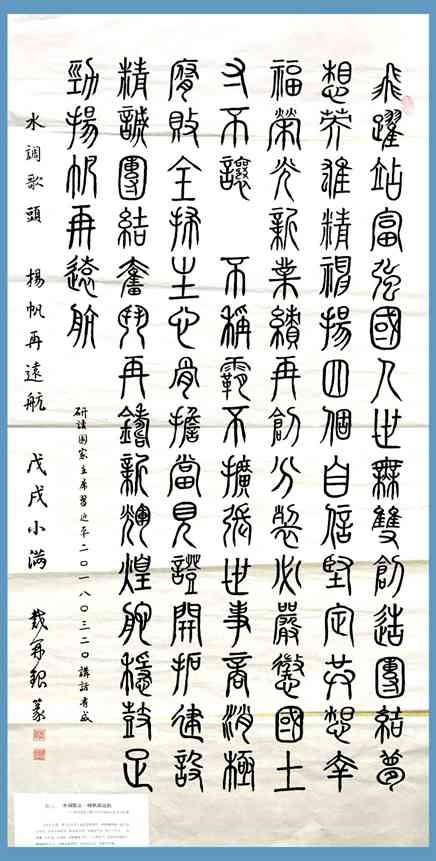 飛躍站富強國人世無雙創造團結夢
想奔進精神揚四個自信堅定共想幸
福榮光新業績再創分裂必嚴懲國土
寸不讓 不稱霸不擴張世事商消極
腐敗全掃主心骨擔當見證開拓建設
精誠團結奮鬥再鑄新輝煌舵穩鼓足
勁揚帆再遠航
研读国家主席習近平二〇一八〇三二〇講話有感
水調歌頭 揚帆再遠航 戊戌小滿 戴銀篆
水调歌头·扬帆再远航